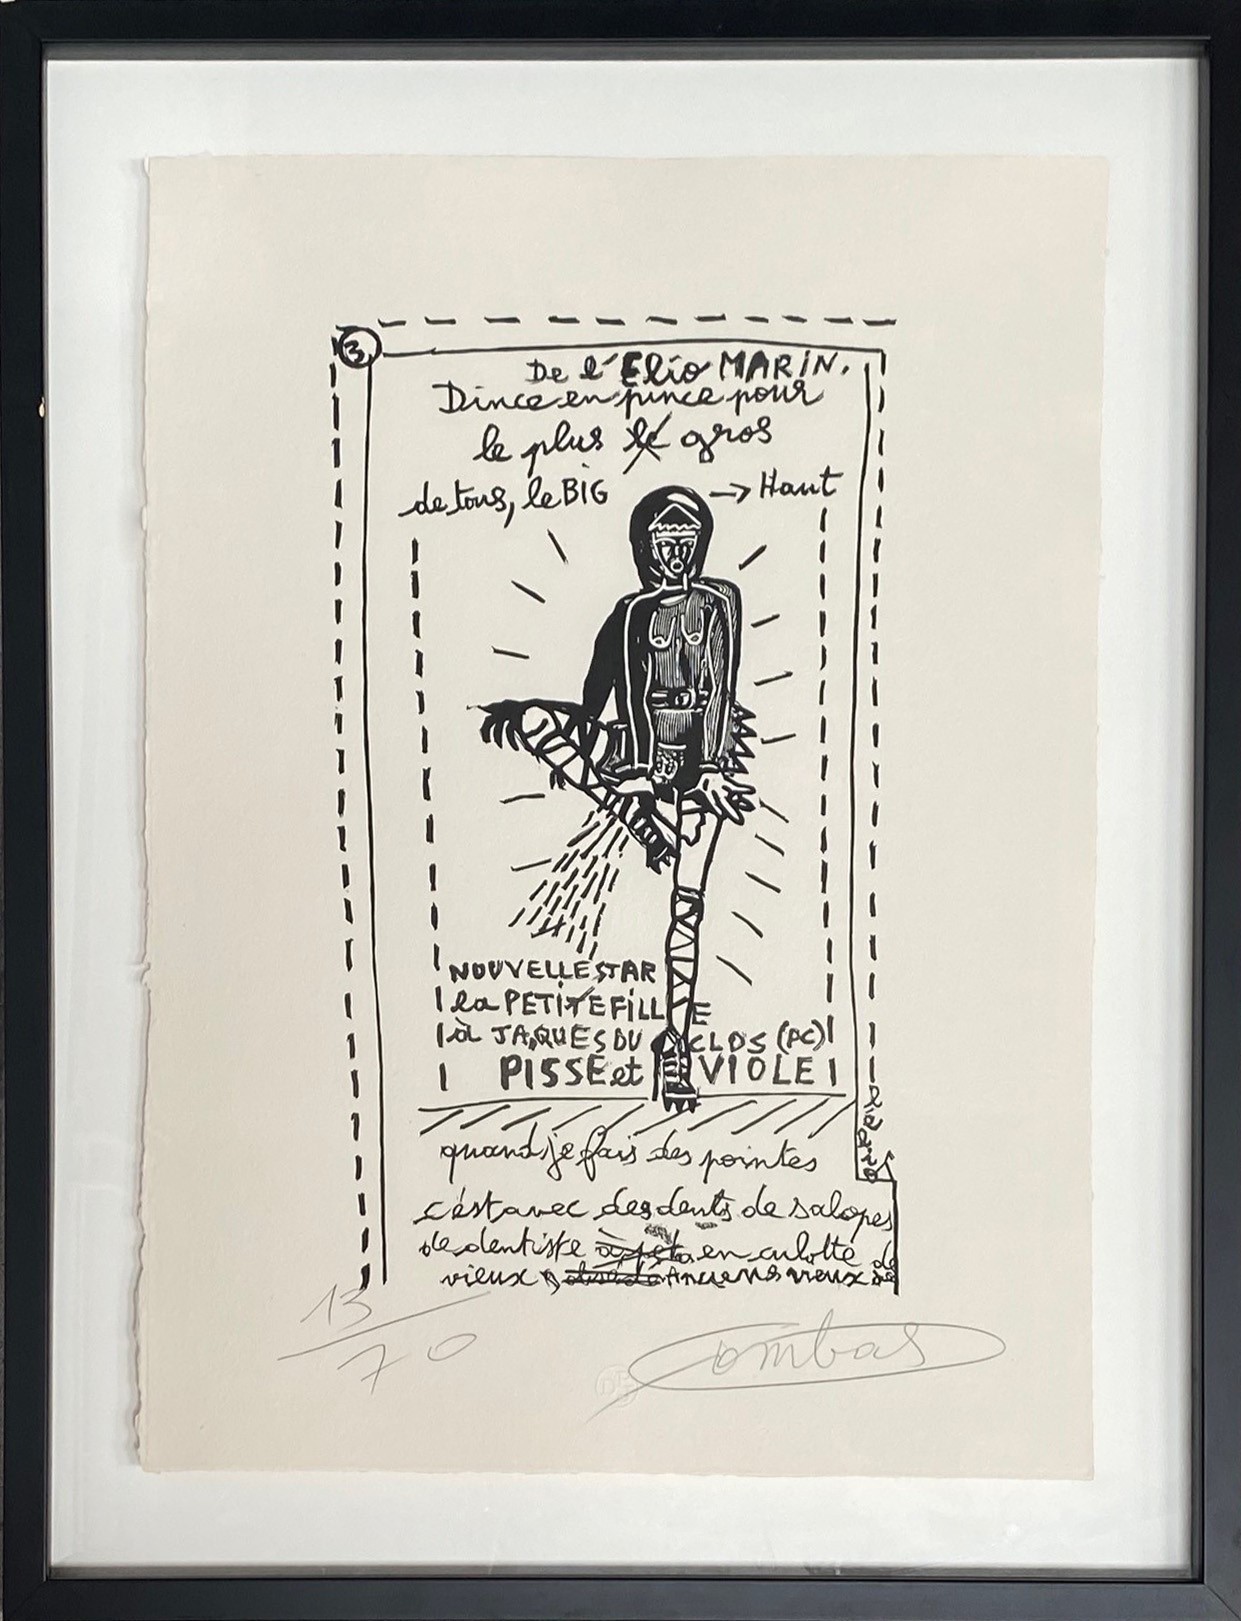 3
De l'Elio MARIN.
Dince en pince pour
le plus le gros
de tous, le BIG → Haut
NOUVELLE STAR
la PETITE FILLE
à JAQUES DU CLOS (PC)
PISSE et VIOLE
quand je fais des pointes
c'est avec des dents de salopes
de dentiste en culotte de
vieux Anciens vieux de
13/70
Combas